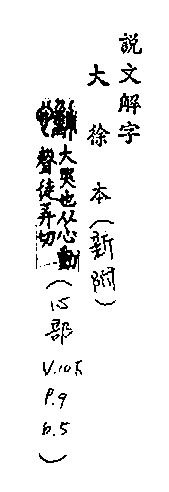 説文解字
大徐本(新附)
大哭也从心動
聲徒弄切
(心部 V.10下 P.9 b.5)